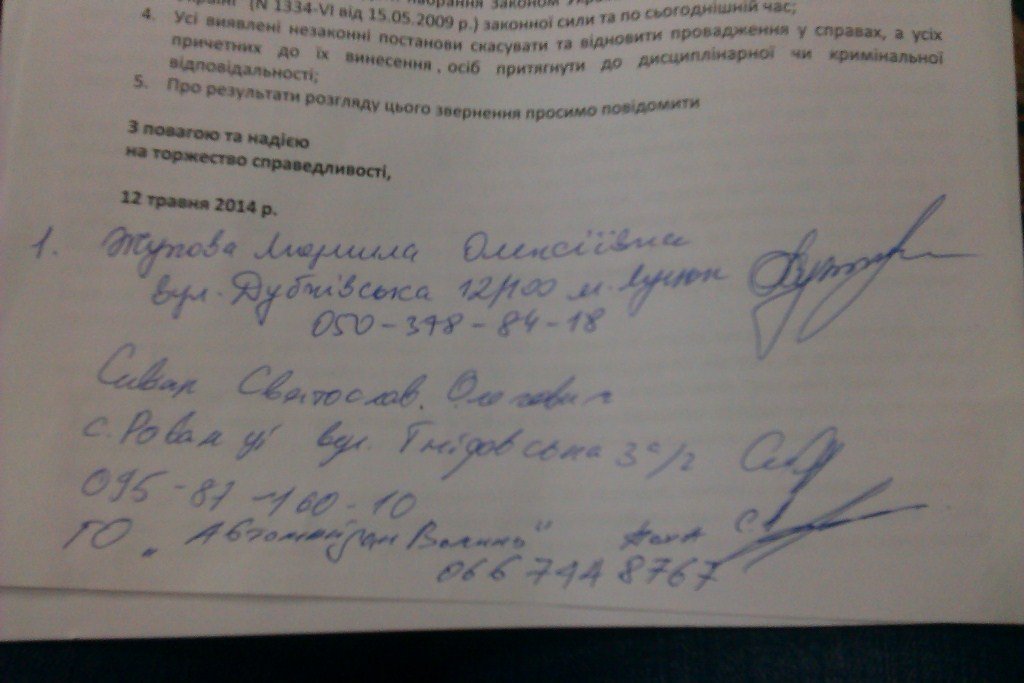 Україні" (N 1334-VI від 15.05.2009 р.) законної сили та по сьогоднішній час;
4. Усі виявлені незаконні постанови скасувати та відновити провадження у справах, а усіх
причетних до їх винесення, осіб притягнути до дисциплінарної чи кримінальної
відповідальності;
5. Про результати розгляду цього звернення просимо повідомити
З повагою та надією
на торжество справедливості,
12 травня 2014 р.
1. Жупова Людмила Олексіївна
вул. Дубнівська 12/100 м. Луцьк
050-378-84-18
Святослав Олегович
с. Рованці вул. Гнідавська
095-87-160-10
ГО „Автомайдан Волинь"
066 744 8767